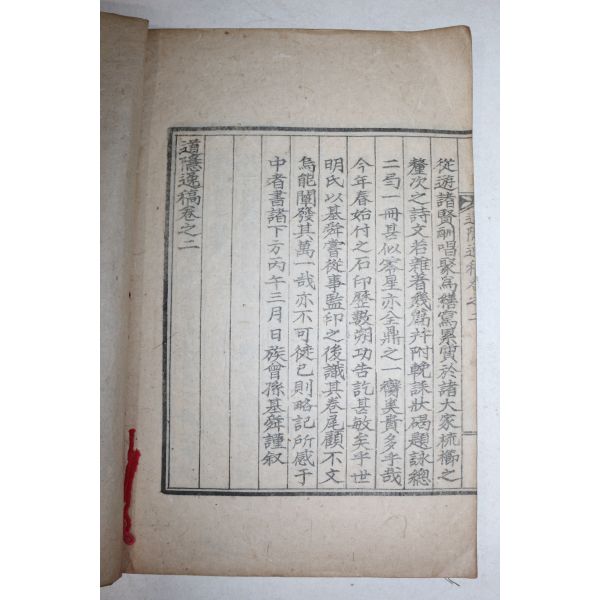 從遊諸賢酬唱聚爲繕寫累質於諸大家梳櫛之
釐次之詩文若雜著幾篇幷附輓誄狀碣題詠總
二弓一冊甚似零星亦全鼎之一臠奚貴多乎哉
今年春始付之石印歷數朔功告訖甚敏矣乎世
明氏以基舜嘗從事監印之後識其卷尾顧不文
烏能闡發其萬一哉亦不可徒已則略記所感于
中者書諸下方丙午三月日族曾孫基舜謹叙
道隱逸稿卷之二